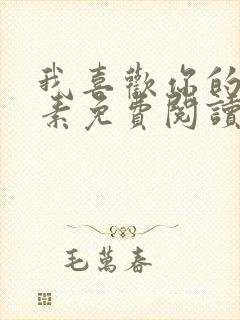 我喜歡你的
素免費閱讀
毛萬春